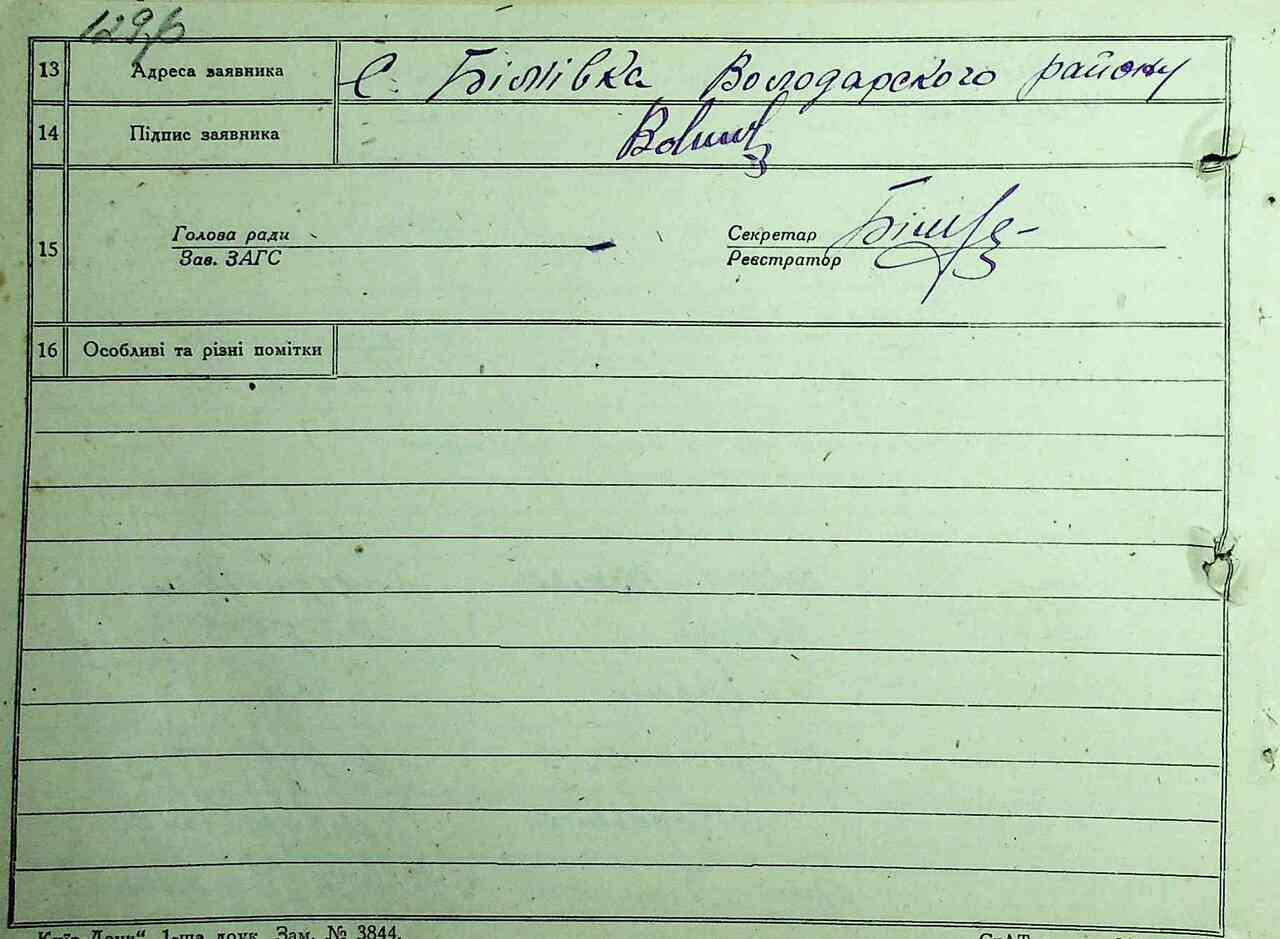 13 Адреса заявника С. Біліївка Володарского району
14 Підпис заявника
15
Голова ради Секретар
Зав. ЗАГС Реєстратор
16 Особливі та різні помітки
1-ша друк. Зам. № 3844.